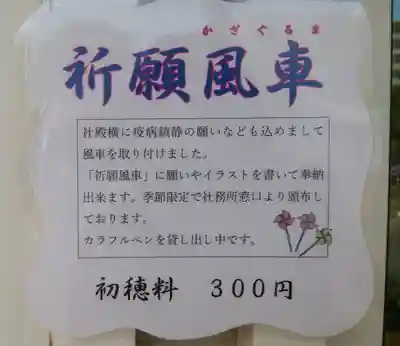 かざぐるま
祈願風車
社殿横に疫病鎮静の願いなども込めまして
風車を取り付けました。
「祈願風車」に願いやイラストを書いて奉納
出来ます。季節限定で社務所窓口より頒布し
ております。
カラフルペンを貸し出し中です。
初穂料 300円